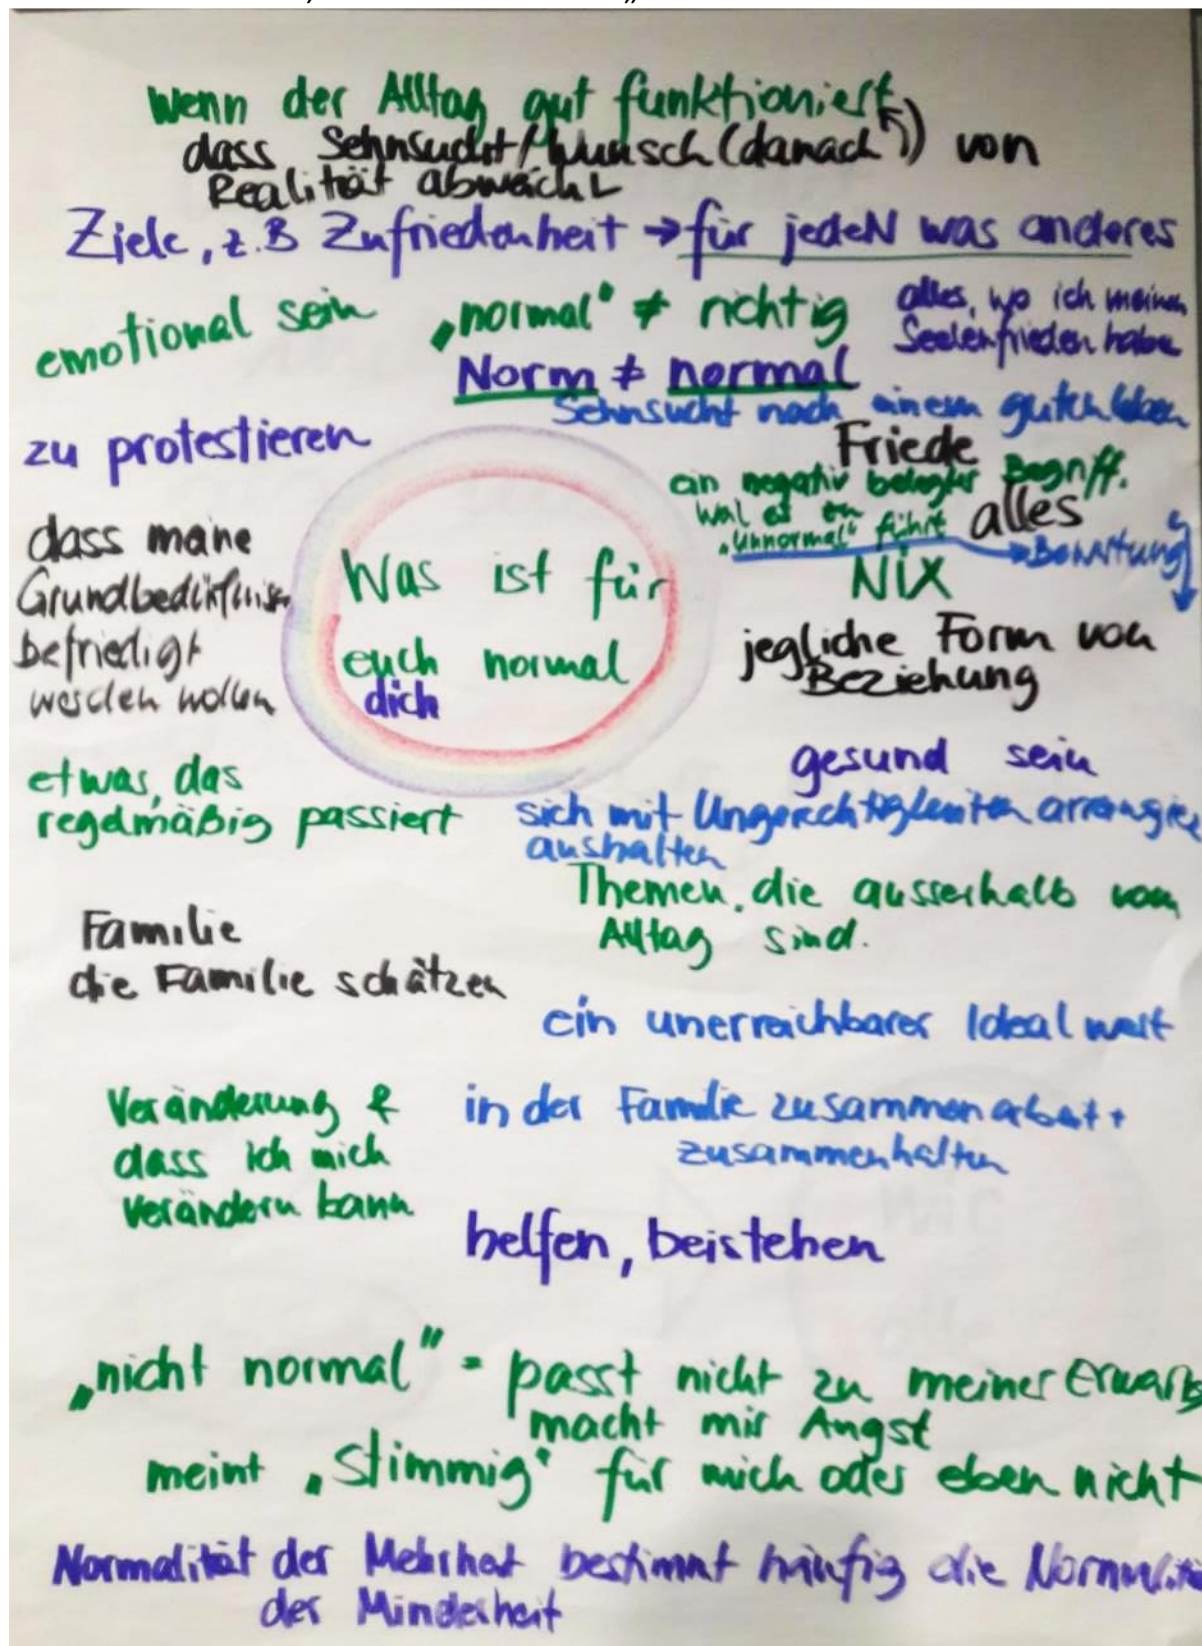 wenn der Alltag gut funktioniert
dass Sehnsucht/Wunsch (danach ↑) von
Realität abweicht
Ziele, z.B Zufriedenheit → für jedeN was anderes
emotional sein
„normal“ ≠ richtig
alles, wo ich meinen
Seelenfrieden habe
Norm ≠ normal
Sehnsucht nach einem guten Leben
zu protestieren
Friede
ein negativ belegter Begriff.
weil es zu
„Unnormal“ führt
→ Bewertung
alles
NiX
dass meine
Grundbedürfnisse
befriedigt
werden wollen
Was ist für
euch normal
dich
jegliche Form von
Beziehung
gesund sein
etwas, das
regelmäßig passiert
sich mit Ungerechtigkeiten arrangie
aushalten
Themen, die ausserhalb vom
Alltag sind.
Familie
die Familie schätzen
ein unerreichbarer Idealwert
Veränderung &
dass ich mich
verändern kann
in der Familie zusammenarbeit +
zusammenhalten
helfen, beistehen
„nicht normal“ = passt nicht zu meiner Erwart
macht mir Angst
meint „Stimmig“ für mich oder eben nicht
Normalität der Mehrheit bestimmt häufig die Normalität
der Minderheit